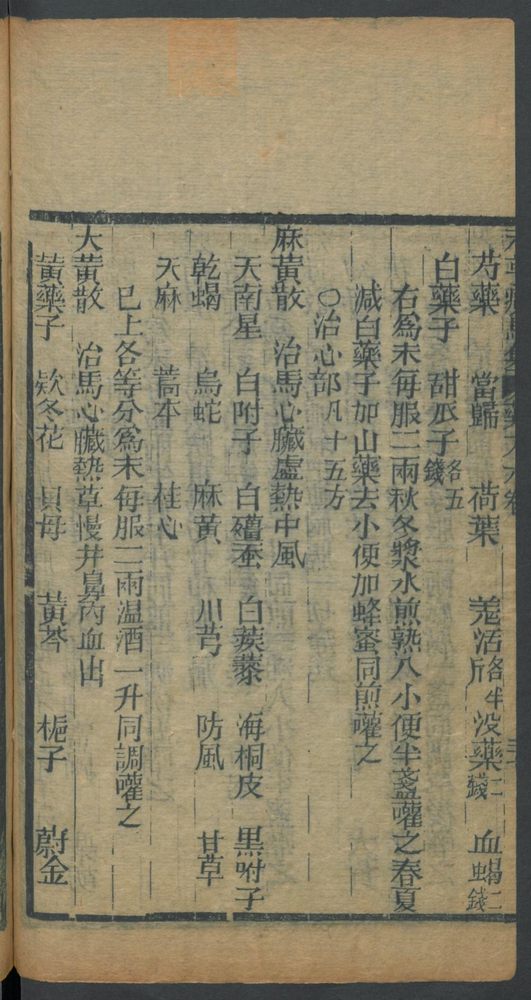 芍藥 當歸 荷葉 羌活各半斤 沒藥二錢 血蝎二錢
白藥子 甜瓜子各五錢
右爲末每服二兩秋冬漿水煎熟入小便半盞嚾之春夏
減白藥子加山藥去小便加蜂蜜同煎嚾之
○治心部凡十五方
麻黃散 治馬心臟虛熱中風
天南星 白附子 白殭蚕 白蒺蔾 海桐皮 黑附子
乾蝎 烏蛇 麻黃 川芎 防風 甘草
天麻 藁本 桂心
已上各等分爲末每服二兩温酒一升同調嚾之
大黃散 治馬心臟熱草慢并鼻內血出
黃藥子 欵冬花 貝母 黃芩 梔子 蔚金